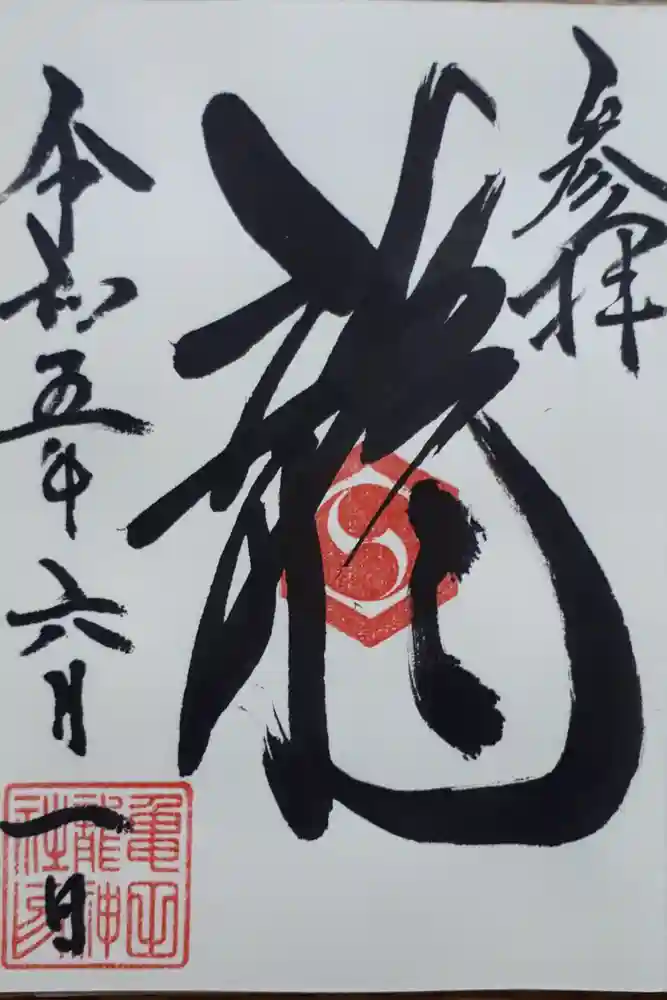 参拝
龍
令和五年六月一日
亀山
龍神
社印